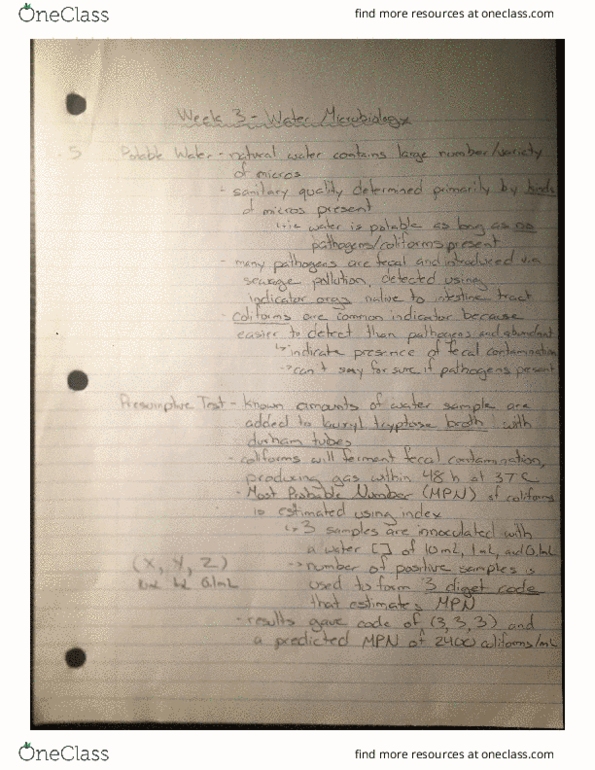 OneClass
find more resources at oneclass.com
Week 3 - Water Microbiology
5 Potable Water - natural water contains large number/variety
of micros
- sanitary quality determined primarily by kinds
of micros present
↳ ie water is potable as long as no
pathogens/coliforms present
- many pathogens are fecal and introduced via
sewage pollution, detected using
indicator orgs native to intestine tract
- coliforms are common indicator because
easier to detect than pathogens and abundant
↳ indicate presence of fecal contamination
→ can't say for sure if pathogens present
Presumptive Test - known amounts of water sample are
added to lauryl tryptose broth with
durham tubes
- coliforms will ferment fecal contamination,
producing gas within 48 h at 37 C
- Most Probable Number (MPN) of coliforms
is estimated using index
↳ 3 samples are innoculated with
a water [] of 10mL, 1mL, and 0.1mL
(X, Y, Z) → number of positive samples is
10mL 1mL 0.1mL used to form 3 diget code
that estimates MPN
- results gave code of (3, 3, 3) and
a predicted MPN of 2400 coliforms/mL
OneClass
find more resources at oneclass.com